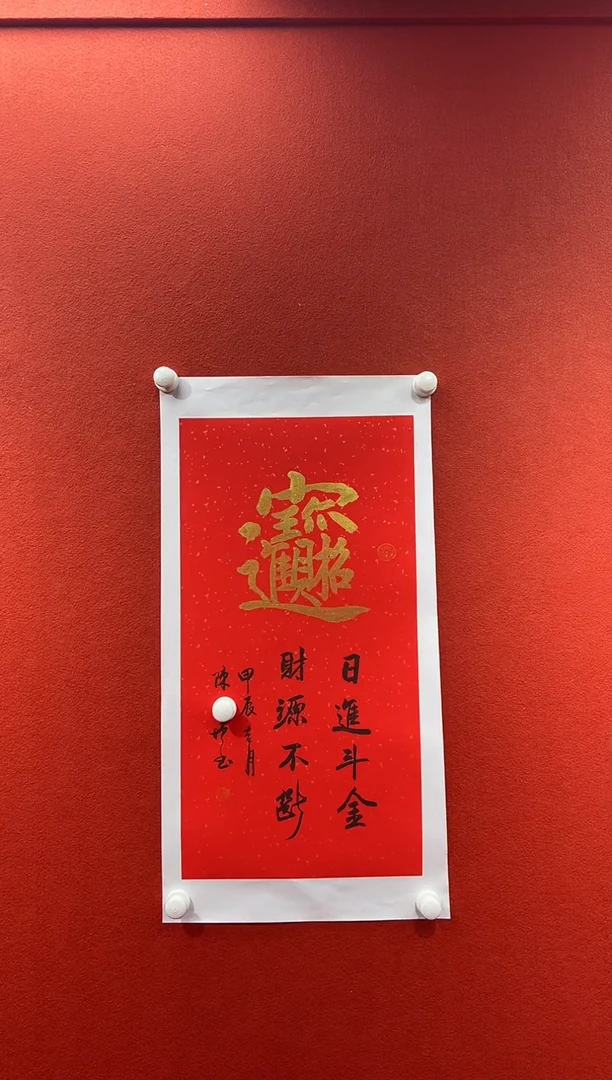 招財進寶
日進斗金
財源不斷
甲辰吉月
陳